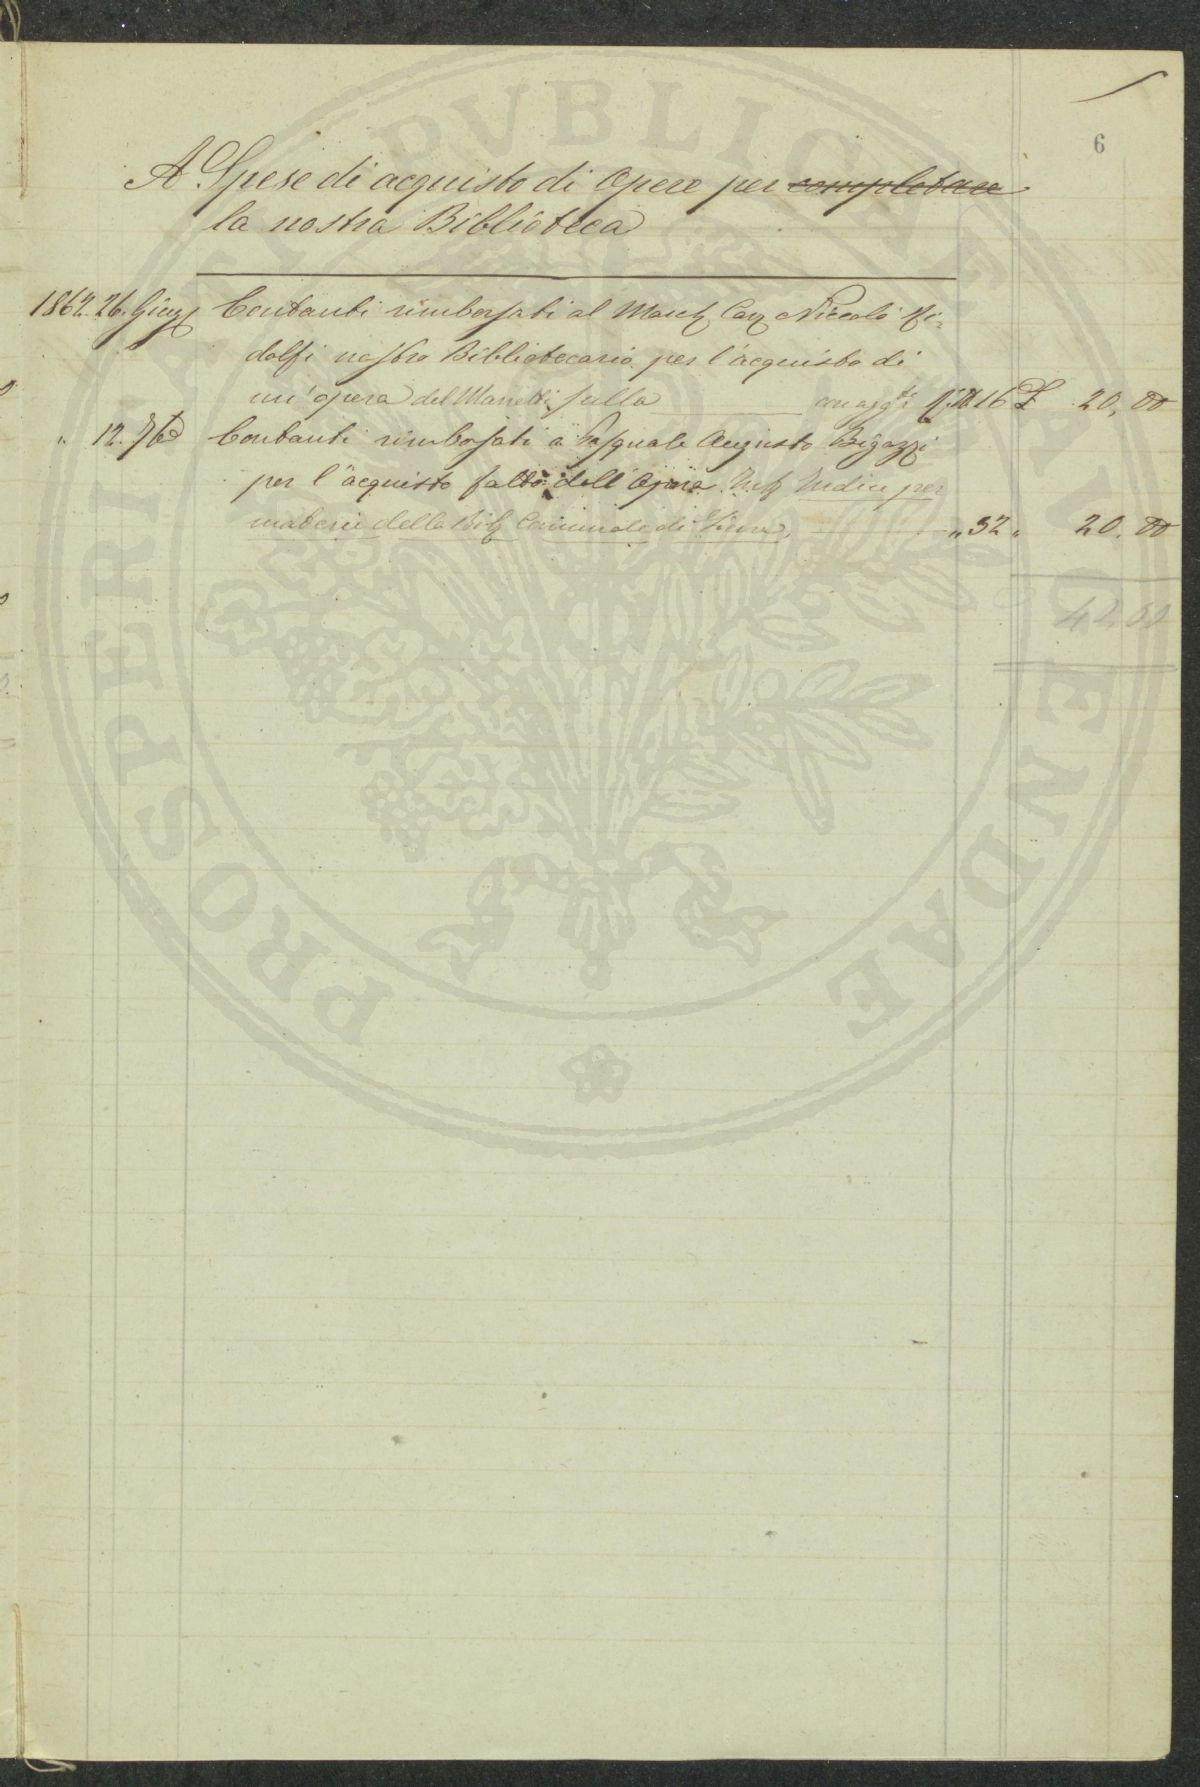 6
A Spese di acquisto di Opere per completare
la nostra Biblioteca
1862. 26. Giug Contanti rimborsati al March Cav Niccolò Ri-
dolfi nostro Bibliotecario per l'acquisto di
un'opera del Manetti sulla 16 £ 20,00
" 12. 7bre Contanti rimborsati a Pasquale Augusto Bigazzi
per l'acquisto fatto dell'Opera Indice per
materie della Bib Comunale di Siena, " 32 " 20.00
42,00
PROSPERITATI PVBLICAE AVGENDAE